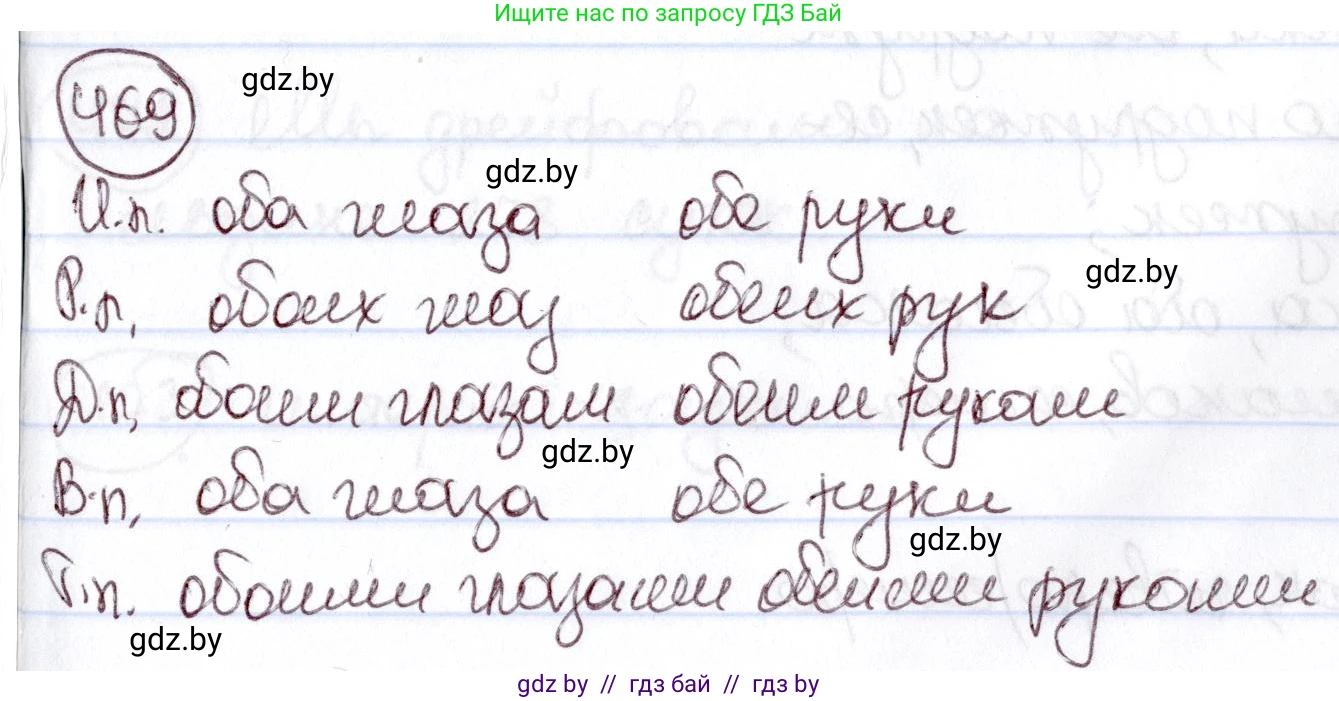 Ищите нас по запросу ГДЗ Бай
469 gdz.by
gdz.by
И.п. оба глаза обе руки
gdz.by
Р.п. обоих глаз обеих рук
Д.п. обоим глазам обеим рукам
gdz.by
В.п. оба глаза обе руки
gdz.by
Т.п. обоими глазами обеими руками
gdz.by
gdz by // гдз бай // гдз by